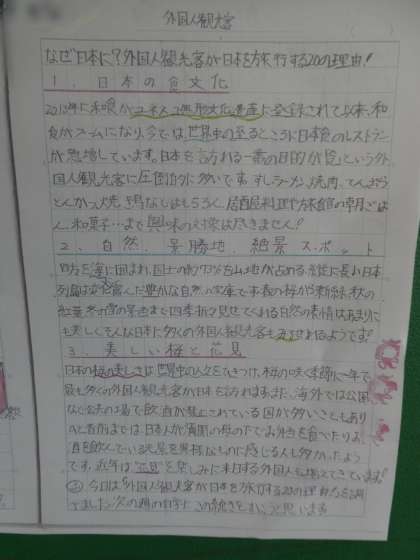 外国人観光客
なぜ日本に?外国人観光客が日本を旅行する20の理由!
1.日本の食文化
2013年に和食がユネスコ無形文化遺産に登録されて以来、和
食がブームになり、今では、世界中の至るところに日本食のレストラン
が急増しています。日本を訪れる一番の目的が「食」という外
国人観光客は圧倒的に多いです。すし、ラーメン、焼肉、てんぷら
とんかつ、大焼
居酒屋料理や旅館の朝ごは
ん、和菓子…まで興味の対象は尽きません!
2.自然、景勝地、絶景スポット
四方を海に囲まれ、国土の約70%を山地が占める縦に長い日本
列島は変化に富んだ豊かな自然の宝庫です。春の桜や新緑、秋の
紅葉、冬の雪の景色まで四季折々見せてくれる自然の表情はあまりに
も美しく、そんな日本に多くの外国人観光客も
3.美しい桜と花見
日本の桜の美しさは世界中の人々をひきつけ、桜の咲く季節に一年で
最も多くの外国人観光客が日本を訪れます。また、海外では公園
など公共の場で飲酒が禁止されている国が多いこともあり
少し前までは、日本人が満開の桜の下でお弁当を食べたりお
酒を飲んでいる光景を異様なものに感じる人も多かったよう
です。近年は"花見"を楽しみに来日する外国人も増えてきています!
今日は「外国人観光客が日本を旅行する20の理由」を調
べました。次の週の自学もこの続きをしようと思います。